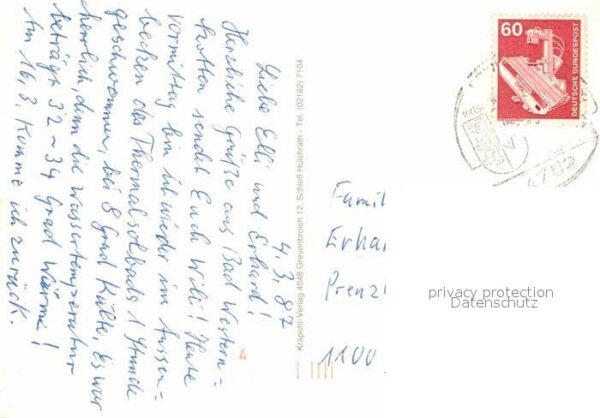 4.3.87
Liebe Elli und Erhard!
Herzliche Grüße aus Bad Western=
kotten sendet Euch Willi! Heute
vormittag bin ich wieder im Aussen=
becken des Thermalsolbads 1 Stunde
geschwommen, bei 8 Grad Kälte. Es war
herrlich, denn die Wassertemperatur
beträgt 32–34 Grad Wärme!
Am 16.3. komme ich zurück.
Krapohl-Verlag 4048 Grevenbroich 12, Schloß Hülchrath - Tel. (02182) 7104
60
DEUTSCHE BUNDESPOST
Famil
Erha
Prenzl
1100
privacy protection
Datenschutz